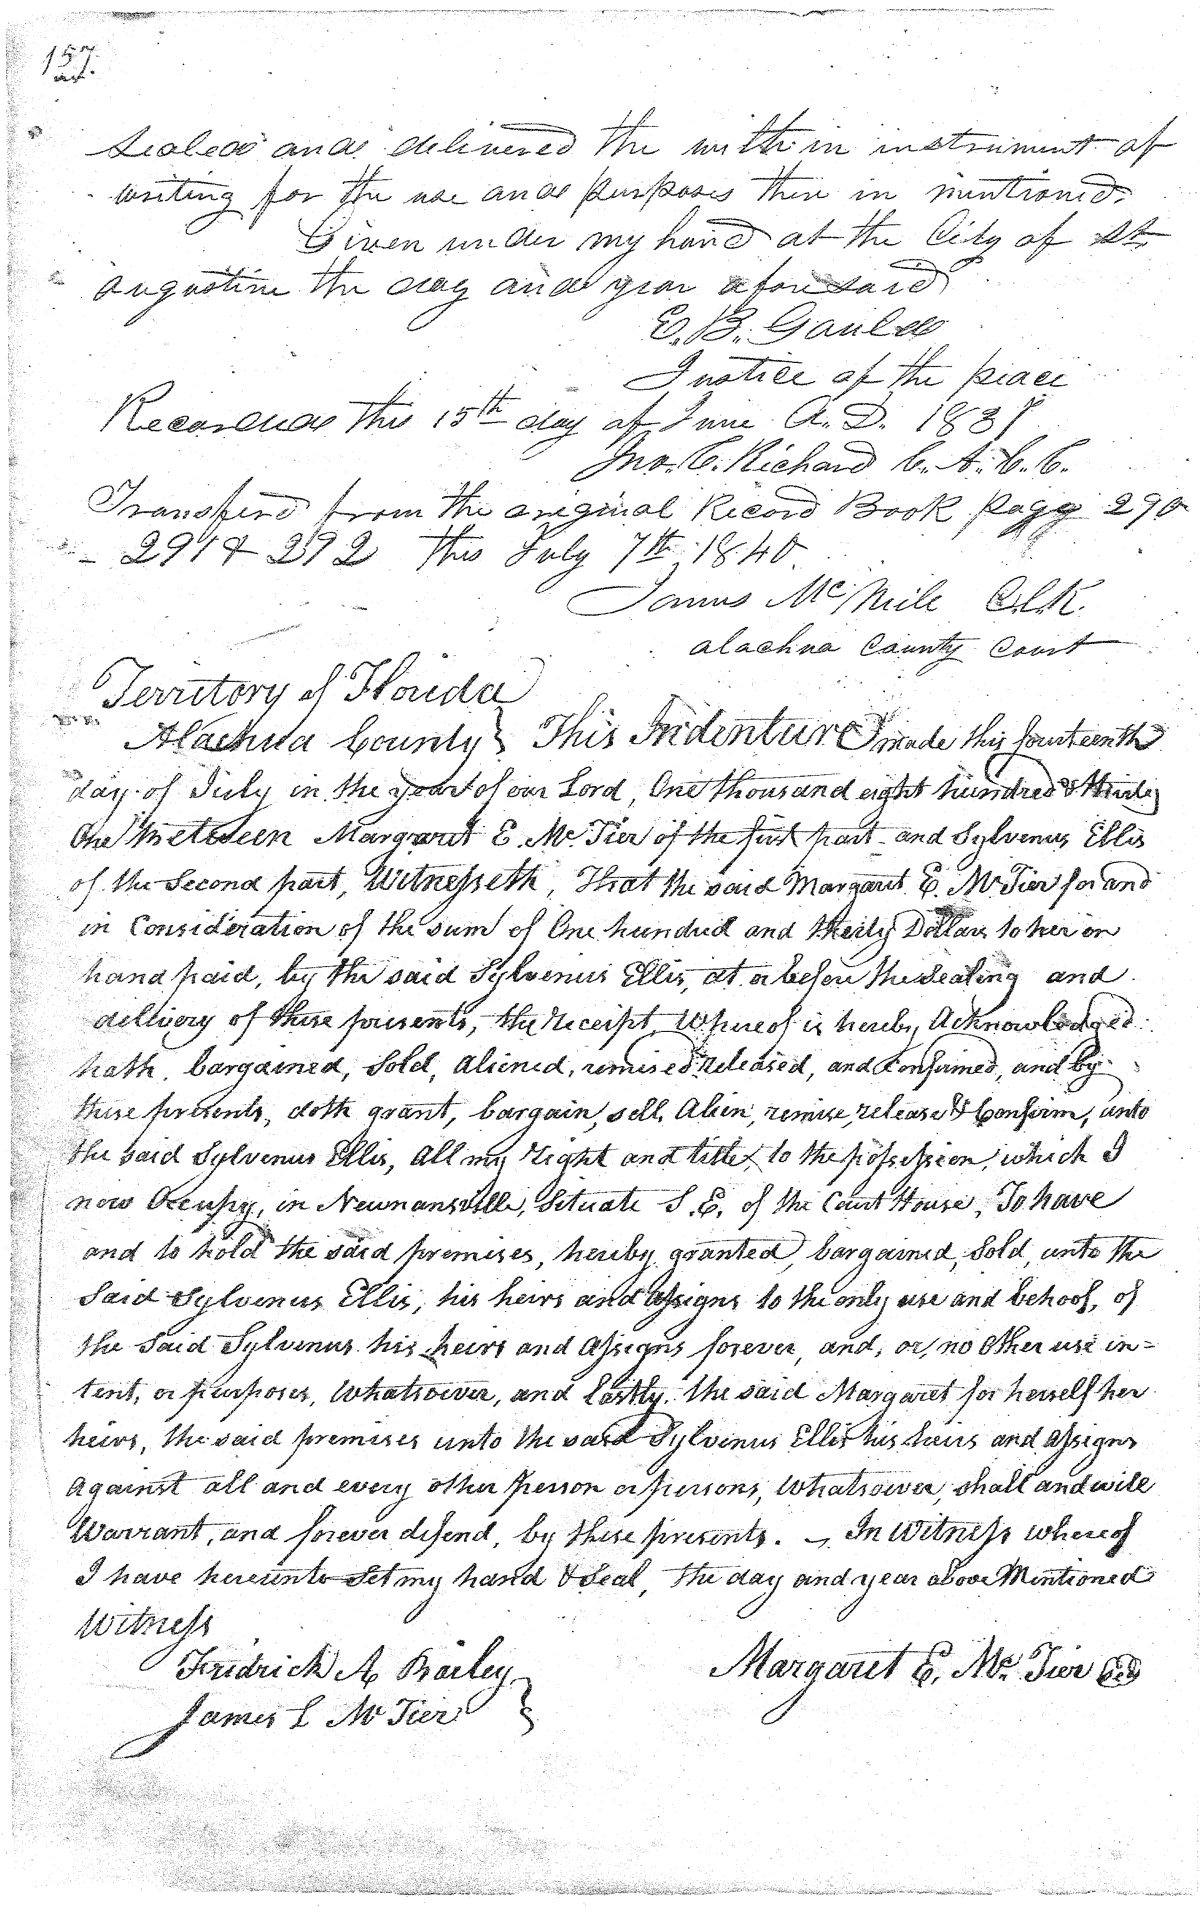 157.
Sealed and delivered the with in instrument of
writing for the use and purposes there in mentioned.
Given under my hand at the City of St.
Augustine the day and year afore said
E. B. Gould
Justice of the peace
Recorded this 15th day of June A. D. 183
Jno. C. Richard C. A. C. C.
Transferd from the original Record Book page 290
- 291 & 292 this July 7th 1840
James Mc Neile Clk.
Alachua County Court
Territory of Florida
Alachua County } This Indenture made this fourteenth
day of July in the year of our Lord, One thousand eight hundred & Thirty
One Between Margaret E. Mc Tier of the first part and Sylvenus Ellis
of the Second part, Witnesseth, That the said Margaret E. Mc Tier for and
in Consideration of the sum of One hundred and thirty Dollars to her in
hand paid, by the said Sylvenus Ellis, at or before the Sealing and
delivery of these presents, the receipt Whereof is hereby Acknowledged
hath, bargained, Sold, aliened, remised, released, and Confirmed, and by
these presents, doth grant, bargain, sell, Alien, remise, release & Confirm, unto
the said Sylvenus Ellis, all my right and title to the possession, which I
now Occupy, in Newnansville, Situate S. E. of the Court House, To have
and to hold the said premises, hereby granted, bargained, Sold, unto the
Said Sylvenus Ellis, his heirs and Assigns to the only use and behoof, of
the Said Sylvenus his heirs and Assigns forever, and, or, no other use in-
tent, or purposes, Whatsoever, and lastly, the said Margaret for herself her
heirs, the said premises unto the said Sylvenus Ellis his heirs and Assigns
against all and every other person or persons, Whatsoever, shall and will
Warrant, and forever defend, by these presents. - In Witness whereof
I have hereunto Set my hand & Seal, the day and year above Mentioned
Witness
Fridrick A Bailey
Margaret E. Mc Tier
James L Mc Tier }